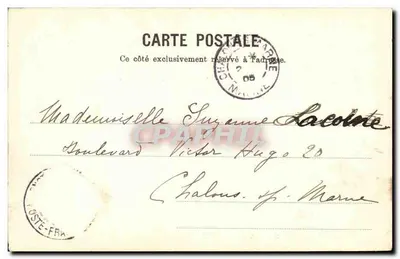 CARTE POSTALE
Ce côté exclusivement réservé à l'adresse.
MARNE
05
Mademoiselle Suzanne Lacombe
Boulevard Victor Hugo 20
Chalons s/ Marne